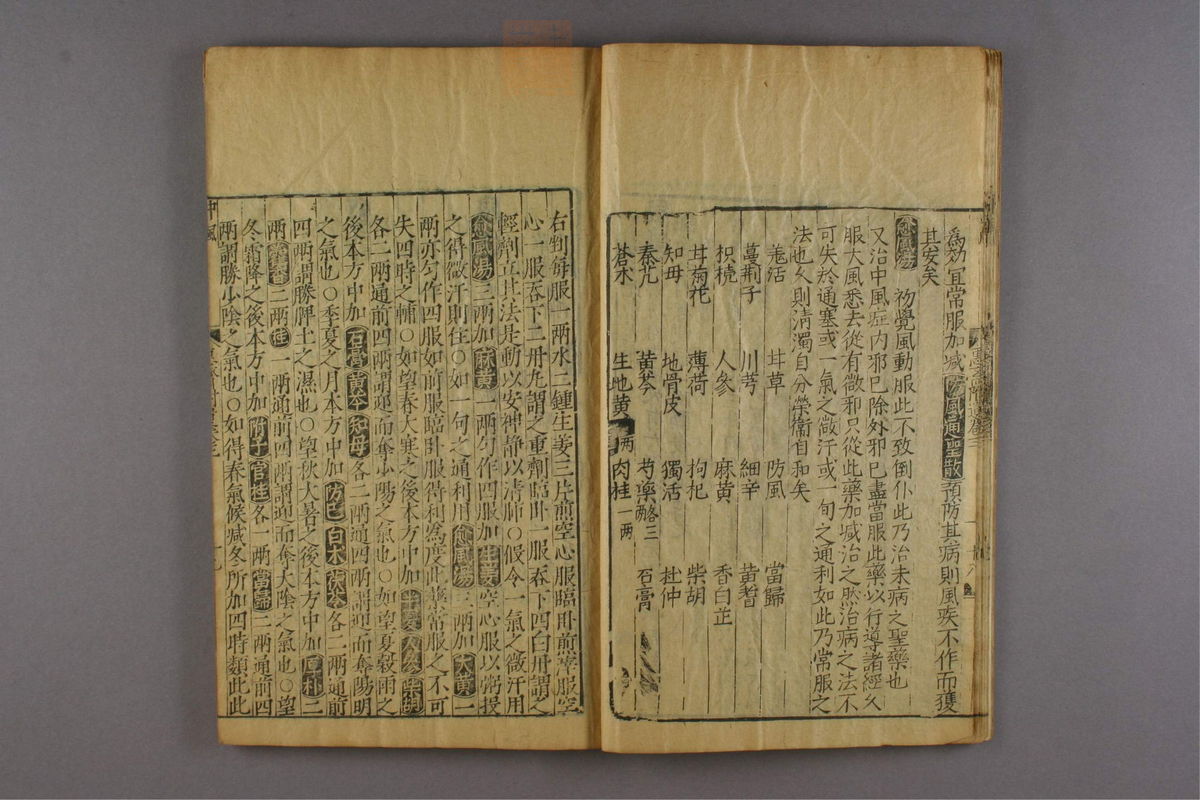 為効宜常服加减防風通聖散預防其病則風疾不作而獲
其安矣
愈風湯 初覺風動服此不致倒仆此乃治未病之聖藥也
又治中風症内邪已除外邪已盡當服此藥以行導諸經久
服大風悉去從有微邪只從此藥加减治之然治病之法不
可失於通塞或一氣之微汗或一旬之通利如此乃常服之
法也久則清濁自分榮衛自和矣
羗活 甘草 防風 當歸
蔓荆子 川芎 細辛 黄耆
枳槵 人參 麻黄 香白芷
甘菊花 薄荷 枸杞 柴胡
知母 地骨皮 獨活 杜仲
秦艽 黄芩 芍藥各三兩 石膏
蒼术 生地黄 兩 肉桂一兩
右剉每服一兩水二鍾生姜三片煎空心服臨卧前滓服空
心一服吞下二丹丸謂之重劑臨卧一服吞下四白丹謂之
輕劑立其法是動以安神静以清肺○假令一氣之微汗用
愈風湯三兩加麻黄一兩勻作四服加生姜空心服以粥投
之得微汗則住○如一旬之通利用愈風湯三兩加大黄一
兩亦勻作四服如前服臨卧服得利為度此藥常服之不可
失四時之輔○如望春大寒之後本方中加半夏人參柴胡
各二兩通前四兩謂迎而奪少陽之氣也○如望夏穀雨之
後本方中加石膏黄芩知母各二兩通四兩謂迎而奪陽明
之氣也○季夏之月本方中加防已白术茯苓各二兩通前
四兩謂勝脾土之濕也○望秋大暑之後本方中加厚朴二
兩藿香二兩桂一兩通前四兩謂迎而奪大陰之氣也○望
冬霜降之後本方中加附子官桂各一兩當歸二兩通前四
兩謂勝小陰之氣也○如得春氣候减冬所加四時類此此
中風